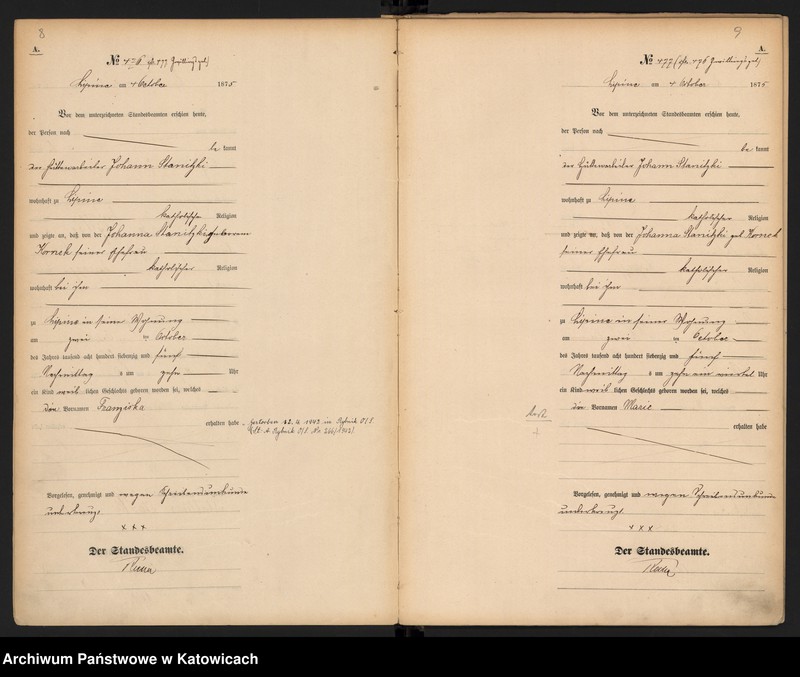 8
A.
№ 476 Zwillingsgeb.)
Lipine am 4 October 1875
Vor dem unterzeichneten Standesbeamten erschien heute,
der Person nach
be kannt
der Hüttenarbeiter Johann Stanitzki
wohnhaft zu Lipine
katholischer Religion
und zeigte an, daß von der Johanna Stanitzki geborenen
Kornek seiner Ehefrau
katholischer Religion
wohnhaft bei ihm
zu Lipine in seiner Wohnung
am zwei ten October
des Jahres tausend acht hundert siebenzig und fünf
Nachmittag s um zehn Uhr
ein Kind weib lichen Geschlechts geboren worden sei, welches
den Vornamen Franziska
erhalten habe
gestorben 12. 1942 in Rybnik O/S.
Rybnik O/S. Nr.
Vorgelesen, genehmigt und wegen Schreibensunkunde
unterkreuzt
x x x
Der Standesbeamte.
9
A.
№ 477 (cfr. 476 Zwillingsgeb.)
Lipine am 4 October 1875
Vor dem unterzeichneten Standesbeamten erschien heute,
der Person nach
be kannt
der Hüttenarbeiter Johann Stanitzki
wohnhaft zu Lipine
katholischer Religion
und zeigte an, daß von der Johanna Stanitzki geb Kornek
seiner Ehefrau
katholischer Religion
wohnhaft bei ihm
zu Lipine in seiner Wohnung
am zwei ten October
des Jahres tausend acht hundert siebenzig und fünf
Nachmittag s um zehn ein viertel Uhr
ein Kind weib lichen Geschlechts geboren worden sei, welches
den Vornamen Marie
erhalten habe
Vorgelesen, genehmigt und wegen Schreibensunkunde
unterkreuzt
x x x
Der Standesbeamte.
Archiwum Państwowe w Katowicach